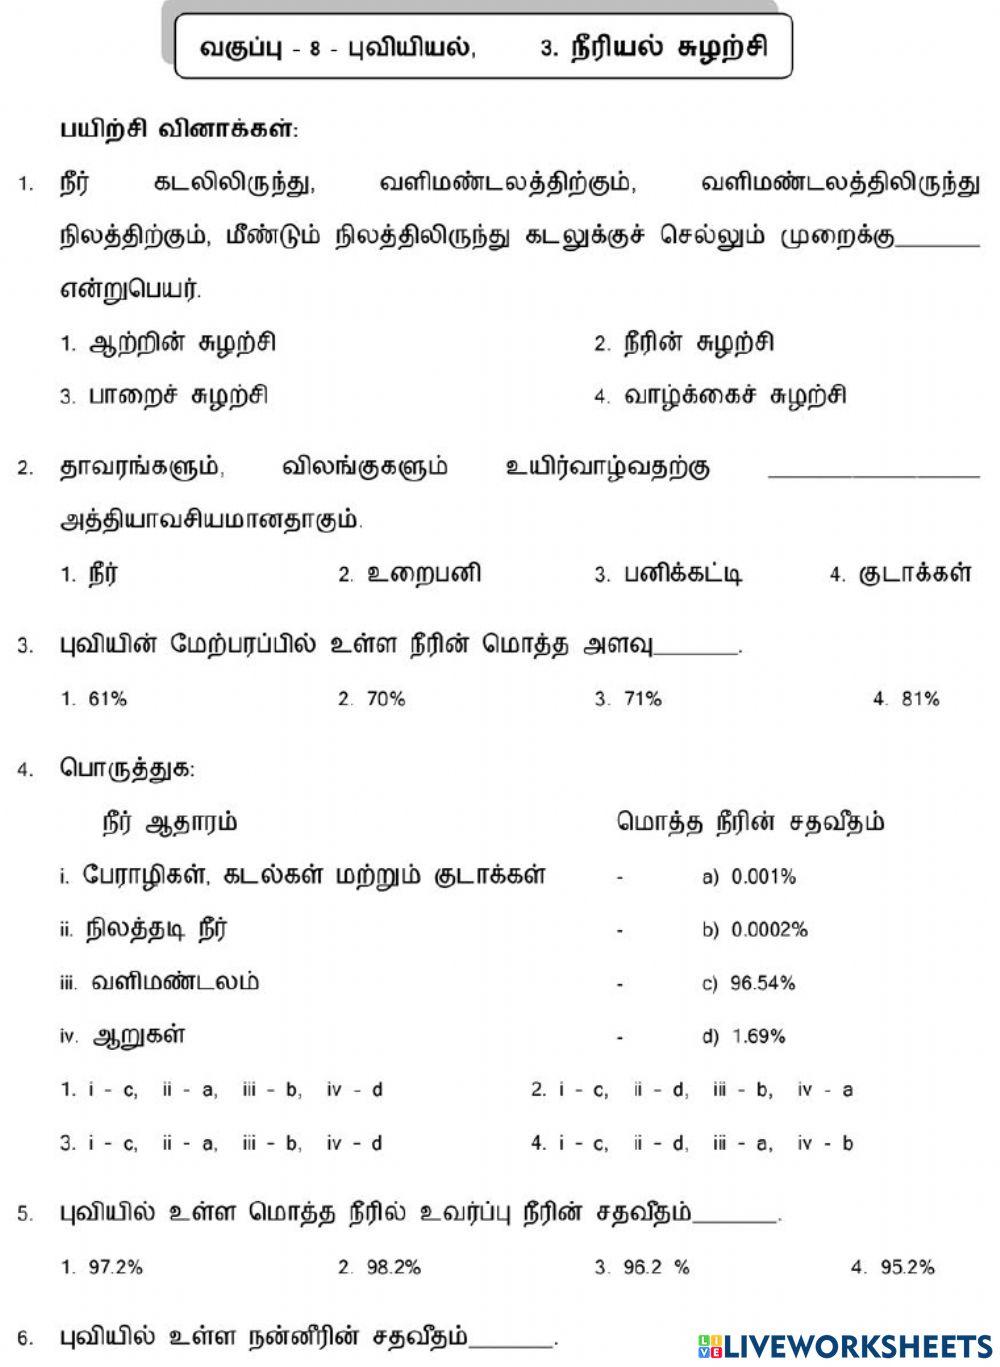 வகுப்பு - 8 - புவியியல், 3. நீரியல் சுழற்சி
பயிற்சி வினாக்கள்:
1. நீர் கடலிலிருந்து, வளிமண்டலத்திற்கும், வளிமண்டலத்திலிருந்து
நிலத்திற்கும், மீண்டும் நிலத்திலிருந்து கடலுக்குச் செல்லும் முறைக்கு_______
என்றுபெயர்.
1. ஆற்றின் சுழற்சி 2. நீரின் சுழற்சி
3. பாறைச் சுழற்சி 4. வாழ்க்கைச் சுழற்சி
2. தாவரங்களும், விலங்குகளும் உயிர்வாழ்வதற்கு _________________
அத்தியாவசியமானதாகும்.
1. நீர் 2. உறைபனி 3. பனிக்கட்டி 4. குடாக்கள்
3. புவியின் மேற்பரப்பில் உள்ள நீரின் மொத்த அளவு_______.
1. 61% 2. 70% 3. 71% 4. 81%
4. பொருத்துக:
நீர் ஆதாரம் மொத்த நீரின் சதவீதம்
i. பேராழிகள், கடல்கள் மற்றும் குடாக்கள் - a) 0.001%
ii. நிலத்தடி நீர் - b) 0.0002%
iii. வளிமண்டலம் - c) 96.54%
iv. ஆறுகள் - d) 1.69%
1. i - c, ii - a, iii - b, iv - d 2. i - c, ii - d, iii - b, iv - a
3. i - c, ii - a, iii - b, iv - d 4. i - c, ii - d, iii - a, iv - b
5. புவியில் உள்ள மொத்த நீரில் உவர்ப்பு நீரின் சதவீதம்_______.
1. 97.2% 2. 98.2% 3. 96.2 % 4. 95.2%
6. புவியில் உள்ள நன்னீரின் சதவீதம்_______.
LIVE LIVEWORKSHEETS